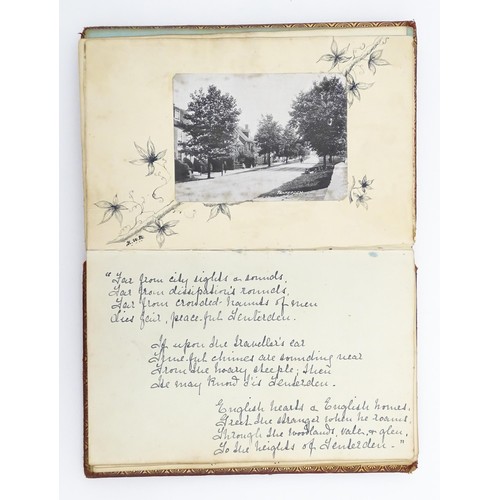 E.H.R.
"Far from city sights & sounds,
Far from dissipation's rounds,
Far from crowded haunts of men
Lies fair, peaceful Tenterden.
If upon the traveller's ear
Tuneful chimes are sounding near
From the hoary steeple; then
He may know 'tis Tenterden.
English hearts & English homes,
Greet the stranger when he roams,
Through the woodlands, vale, & glen,
To the heights of Tenterden."